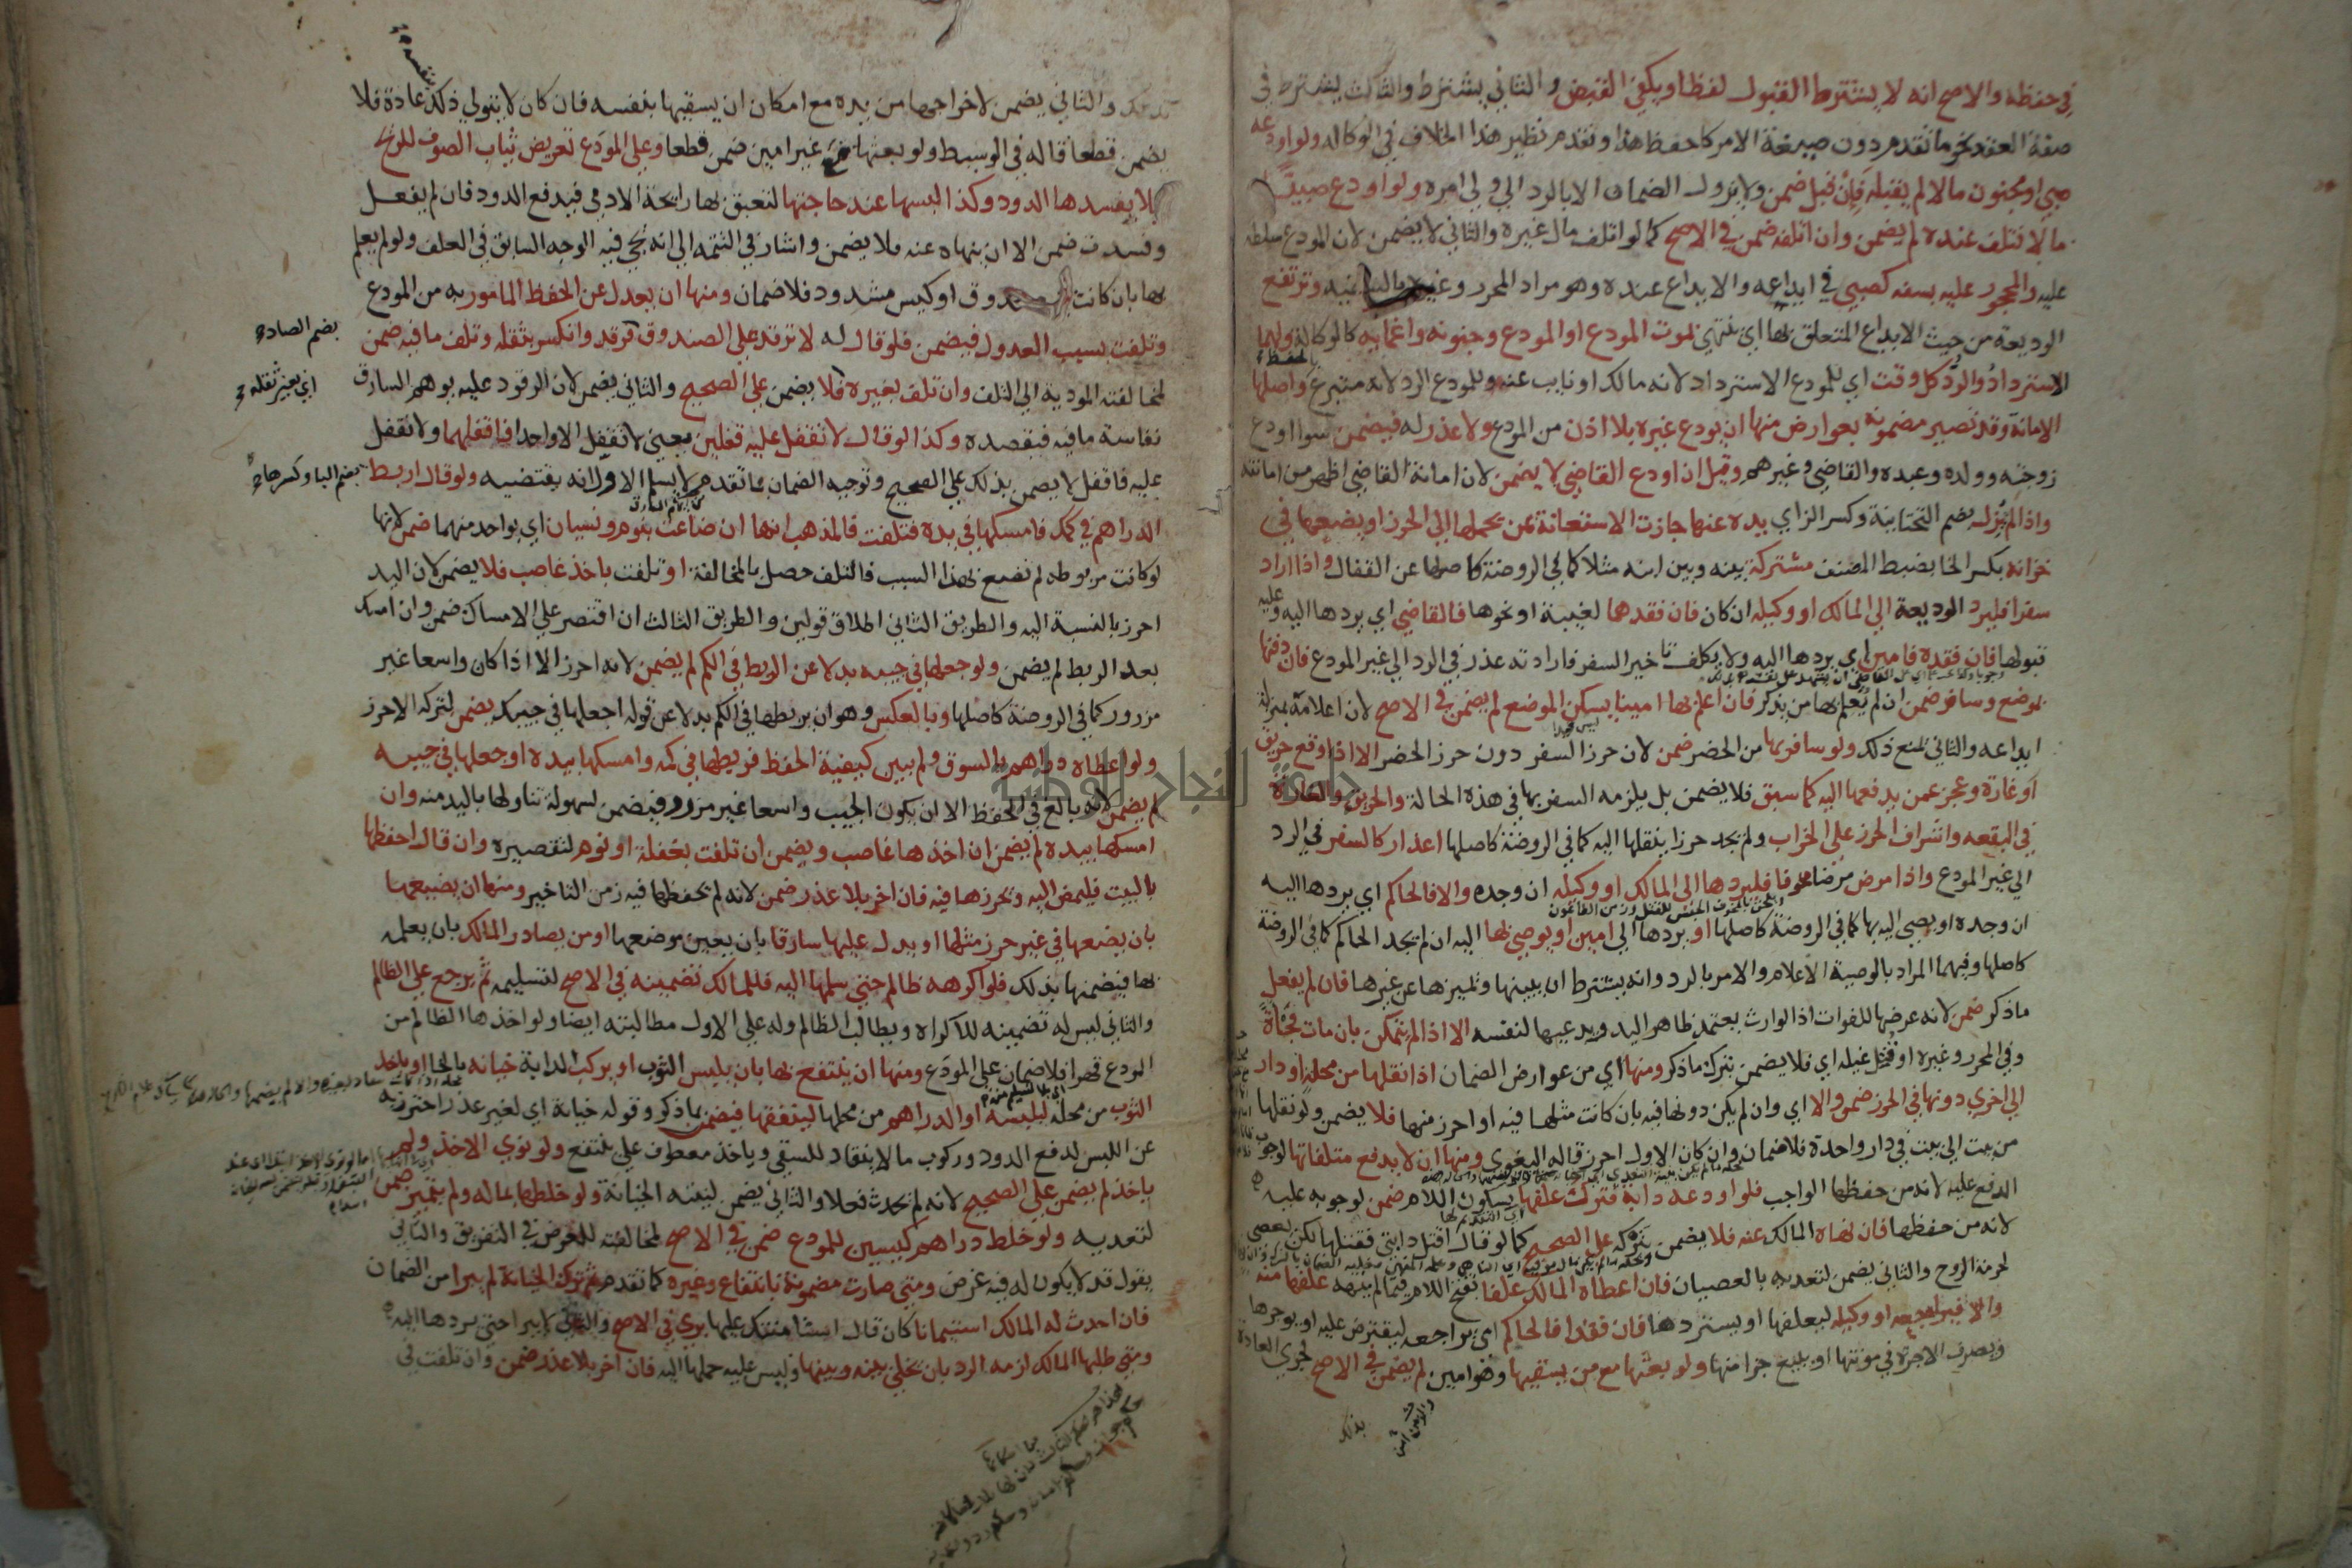 في حفظه والاصح انه لا يشترط القبول لفظا ويكفي القبض والثاني يشترط والثالث يشترط في
صيغة العقد نحو ما تقدم دون صيغة الامر كاحفظ هذا وتقدم نظير هذا الخلاف في الوكالة ولو اودعه
صبي او مجنون مالا لم يقبله فان قبل ضمن ولا يزول الضمان الا بالرد الي ولي امره ولو اودع صبيا
مالا فتلف عنده لم يضمن وان اتلفه ضمن في الاصح كما لو اتلف مال غيره والثاني لا يضمن لان المودع سلطه
عليه والمحجور عليه بسفه كصبي في ايداعه والايداع عنده وهو مراد المحرر وغيره وترتفع
الوديعة من حيث الايداع المتعلق بها اي ينتهي بموت المودع او المودع وجنونه واغمايه كالوكالة ولهما
الاسترداد والرد كل وقت اي للمودع الاسترداد لانه مالك او نايب عنه وللمودع الرد لانه متبرع بالحفظ واصلها
الامانة وقد تصير مضمونة بعوارض منها ان يودع غيره بلا اذن من المودع ولا عذر له فيضمن سوا اودع
زوجته وولده وعبده والقاضي وغيرهم وقيل ان اودع القاضي لا يضمن لان امانة القاضي اظهر من امانته
واذا لم يزل بضم التحتانية وكسر الزاي يده عنها جازت الاستعانة بمن يحملها الي الحرز او يضعها في
خزانة بكسر الخا بضبط المصنف مشتركة بينه وبين ابنه مثلا كما في الروضة كاصلها عن القفال واذا اراد
سفرا فليرد الوديعة الي المالك او وكيله ان كان فان فقدهما لغيبة او نحوها فالقاضي اي يردها اليه وعليه
قبولها فان فقده فامين اي يردها اليه ولا يكلف تاخير السفر فارادته عذر في الرد الي غير المودع فان دفنها
بموضع وسافر ضمن ان لم يعلم بها من يذكر فان اعلم بها امينا يسكن الموضع لم يضمن في الاصح لان اعلامه بمنزلة
ايداعه والثاني يمنع ذلك ولو سافر بها من الحضر ضمن لان حرز السفر دون حرز الحضر الا اذا وقع حريق
او غارة وعجز عمن يدفعها اليه كما سبق فلا يضمن بل يلزمه السفر بها في هذه الحالة والحريق والغارة
في البقعه واشراف الحرز علي الخراب ولم يجد حرزا ينقلها اليه كما في الروضة كاصلها اعذار كالسفر في الرد
الي غير المودع واذا مرض مرضا مخوفا فليردها الى المالك او وكيله ان وجده والا فالحاكم اي يردها اليه
ان وجده او يوصي اليه بها كما في الروضة كاصلها او يردها الي امين او يوصي بها اليه ان لم يجد الحاكم كما في الروضة
كاصلها وفيهما المراد بالوصية الاعلام والامر بالرد وانه يشترط ان يبينها وتمييزها عن غيرها فان لم يفعل
ما ذكر ضمن لانه عرضها للفوات اذ الوارث يعتمد ظاهر اليد ويدعيها لنفسه الا اذا لم يتمكن بان مات فجاة
وفي المحرر وغيره او قتل غيلة اي فلا يضمن بترك ما ذكر ومنها اي من عوارض الضمان اذا نقلها من محلة او دار
الي اخري دونها في الحرز ضمن والا اي وان لم يكن دونها فيه بان كانت مثلها فيه او احرز منها فلا يضمن ولو نقلها
من بيت الي بيت في دار واحدة فلا ضمان وان كان الاول احرز قاله البغوي ومنها ان لا يدفع متلفاتها لوجوب
الدفع عليه لانه من حفظها الواجب فلو اودعه دابة فترك علفها بسكون اللام ضمن لوجوبه عليه
لانه من حفظها فان نهاه المالك عنه فلا يضمن بتركه على الصحيح كما لو قال اقتل دابتي فقتلها لكن يعصي
لحرمة الروح والثاني يضمن لتعديه بالعصيان فان اعطاه المالك علفا بفتح اللام علفها منه
والا فيراجعه او وكيله ليعلفها او يستردها فان فقدا فالحاكم اي يراجعه ليقترض عليه او يوجرها
ويصرف الاجرة في مونتها او يبيع جزا منها ولو بعثها مع من يسقيها وهو امين لم يضمن في الاصح لجري العادة
بذلك
بذلك والثاني يضمن لاخراجها من يده مع امكان ان يسقيها بنفسه فان كان لا يتولي ذلك عادة فلا
يضمن قطعا قاله في الوسيط ولو بعثها مع غير امين ضمن قطعا وعلي المودع تعريض ثياب الصوف للريح
كيلا يفسدها الدود وكذا لبسها عند حاجتها لتعبق بها رايحة الادمي فيدفع الدود فان لم يفعل
وفسدت ضمن الا ان ينهاه عنه فلا يضمن واشار في التتمه الي انه يجي فيه الوجه السابق في العلف ولو لم يعلم
بها بان كانت في صندوق او كيس مشدود فلا ضمان ومنها ان يعدل عن الحفظ المامور به من المودع
وتلفت بسبب العدول فيضمن فلو قال له لا ترقد علي الصندوق فرقد وانكسر بثقله وتلف ما فيه ضمن
بضم الصاد
لمخالفته المودية الي التلف وان تلف بغيره فلا يضمن علي الصحيح والثاني يضمن لان الرقود عليه يوهم السارق
اي بغير ثقله
نفاسة ما فيه فيقصده وكذا لو قال لا تقفل عليه قفلين يعني لا تقفل الا واحدا فاقفلهما ولا تقفل
عليه فاقفل لا يضمن بذلك علي الصحيح وتوجيه الضمان بما تقدم لا يسلم الاول انه يقتضيه ولو قال اربط
بضم البا وكسرها
الدراهم في كمك فامسكها في يده فتلفت فالمذهب انها ان ضاعت بنوم ونسيان اي بواحد منهما ضمن لانها
لو كانت مربوطه لم تضع بهذا السبب فالتلف حصل بالمخالفة او تلفت باخذ غاصب فلا يضمن لان اليد
احرز بالنسبة اليه والطريق الثاني اطلاق قولين والطريق الثالث ان اقتصر علي الامساك ضمن وان امسك
بعد الربط لم يضمن ولو جعلها في جيبه بدلا عن الربط في الكم لم يضمن لانه احرز الا اذا كان واسعا غير
مزرور كما في الروضة كاصلها وبالعكس وهو ان يربطها في الكم بدلا عن قوله اجعلها في جيبك يضمن لتركه الاحرز
ولو اعطاه دراهم بالسوق ولم يبين كيفية الحفظ فربطها في كمه وامسكها بيده او جعلها في جيبه
لم يضمن لانه بالغ في الحفظ الا ان يكون الجيب واسعا غير مزرور فيضمن لسهولة تناولها باليد منه وان
امسكها بيده لم يضمن ان اخذها غاصب ويضمن ان تلفت بغفلة او نوم لتقصيره وان قال احفظها
بالبيت فليمض اليه ويحرزها فيه فان اخر بلا عذر ضمن لانه لم يحفظها فيه زمن التاخير ومنها ان يضيعها
بان يضعها في غير حرز مثلها او يدل عليها سارقا بان يعين موضعها او من يصادر المالك بان يعلمه
بها فيضمنها بذلك فلو اكرهه ظالم حتي سلمها اليه فللمالك تضمينه في الاصح لتسليمه ثم يرجع علي الظالم
والثاني ليس له تضمينه للاكراه ويطالب الظالم وله علي الاول مطالبته ايضا ولو اخذها الظالم من
المودع قهرا فلا ضمان علي المودع ومنها ان ينتفع بها بان يلبس الثوب او يركب الدابة خيانة بالخا او ياخذ
الثوب من محله ليلبسه او الدراهم من محلها لينفقها فيضمن بما ذكر وقوله خيانة اي لغير عذر احترز به
عن اللبس لدفع الدود وركوب ما لا ينقاد للسقي وياخذ معطوف علي ينتفع ولو نوي الاخذ ولم
ياخذ لم يضمن علي الصحيح لانه لم يحدث فعلا والثاني يضمن لنيته الخيانة ولو خلطها بماله ولم يتميز ضمن
لتعديه ولو خلط دراهم كيسين للمودع ضمن في الاصح لمخالفته للغرض في التفريق والثاني
يقول قد لا يكون له فيه غرض ومتي صارت مضمونة بانتفاع وغيره كما تقدم ثم ترك الخيانة لم يبرا من الضمان
فان احدث له المالك استيمانا كان قال استامنتك عليها بري في الاصح والثاني لا يبرا حتي يردها اليه
ومتي طلبها المالك لزمه الرد بان يخلي بينه وبينها وليس عليه حملها اليه فان اخر بلا عذر ضمن وان تلفت في
جامعة النجاح الوطنية